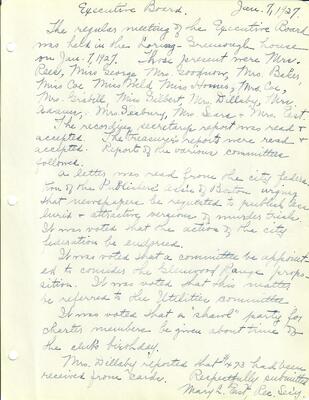 Executive Board. Jan. 7, 1927.
The regular meeting of the Executive Board
was held in the Loring-Greenough house
on Jan. 7, 1927. Those present were Mrs.
Reed, Miss George Mrs. Goodnow, Mrs. Bates,
Miss Coe Miss Weld Miss Morris, Mrs. Coe,
Mrs. Grabill, Miss Gilbert, Mrs. Dillaby, Mrs.
Mrs. Seabury, Mrs. Sears & Mrs. East.
The recording secretary report was read &
accepted. The treasurer's reports were read &
accepted. Report of the various committees
followed.
A letter was read from the city federa-
tion of the Publishers' Ass'n of Boston urging
that newspapers be requested to publish less
lurid & attractive versions of murder trials.
It was voted that the action of the city
federation be endorsed.
It was voted that a committee be appoint-
ed to consider the Glenwood Range propo-
sition. It was voted that this matter
be referred to the Utilities committee
It was voted that a "shawl" party for
charter members be given about time of
the club's birthday.
Mrs. Dillaby reported that $473 had been
received from cards. Respectfully submitted
Mary L. East, Rec. Sec'y.